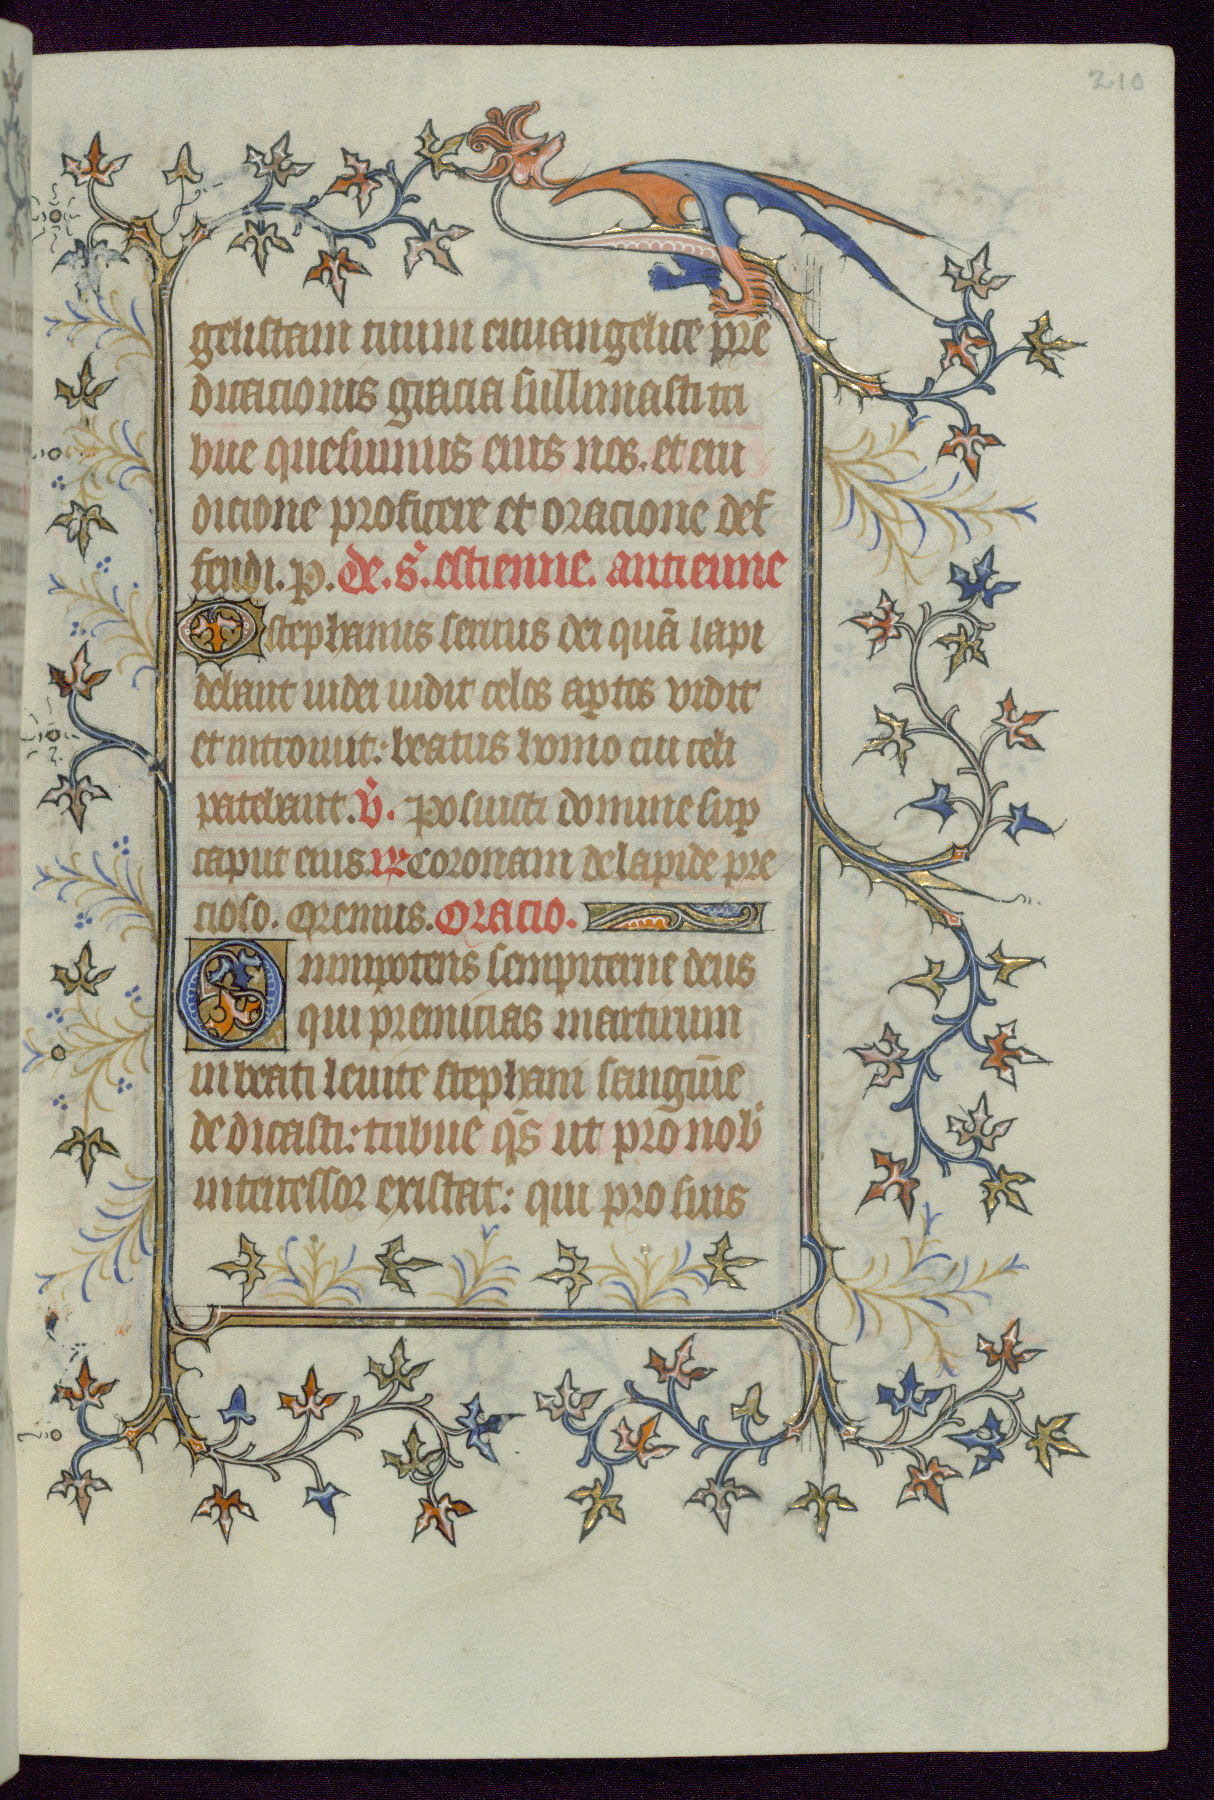 210
gelistam tuum euuangelice pre
dicacionis gracia sullimasti tri
bue quesumus eius nos. et eru
dicione proficere et oracione def
fendi. p. de. s. estienne. antienne
O stephanus seruus dei quā lapi
debant iudei uidit celos aptos vidit
et introiuit: beatus homo cui celi
patebant. v̄. Posuisti domine sup
caput eius. ꝶ Coronam de lapide pre
cioso. Oremus. Oracio.
Omnipotens sempiterne deus
qui premicias martirum
in beati leuite stephani sanguīe
dedicasti: tribue qs̄ ut pro nob
intercessor existat: qui pro suis